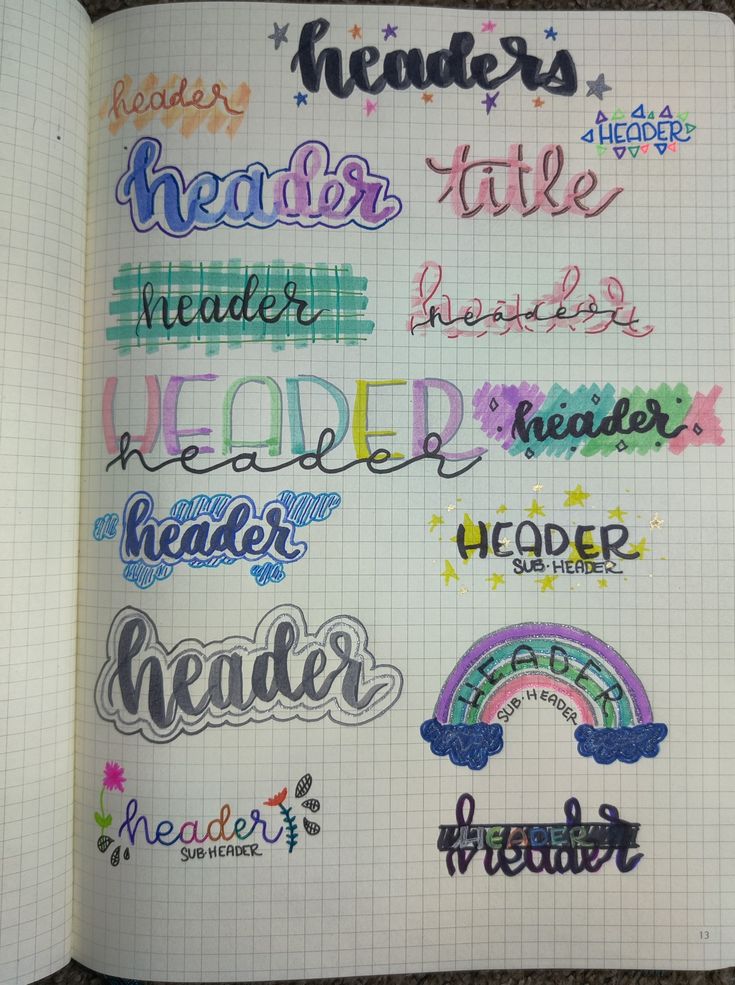 headers
header
HEADER
header
title
header
header
header
HEADER
header
header
header
HEADER
SUB·HEADER
header
HEADER
SUB·HEADER
header
SUB·HEADER
HEADER
header
13